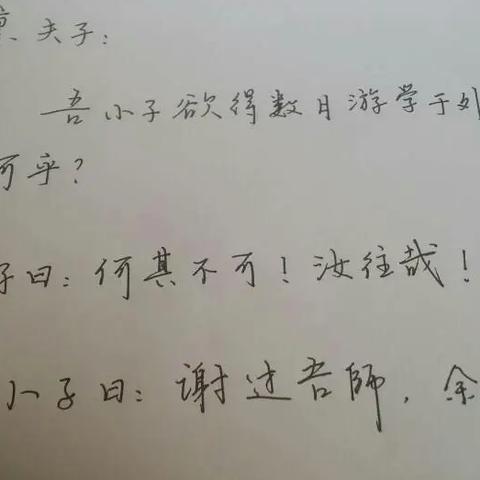 禀夫子：
吾小子欲得数月游学于外
可乎？
子曰：何其不可！汝往哉！
小子曰：谢过吾師，余